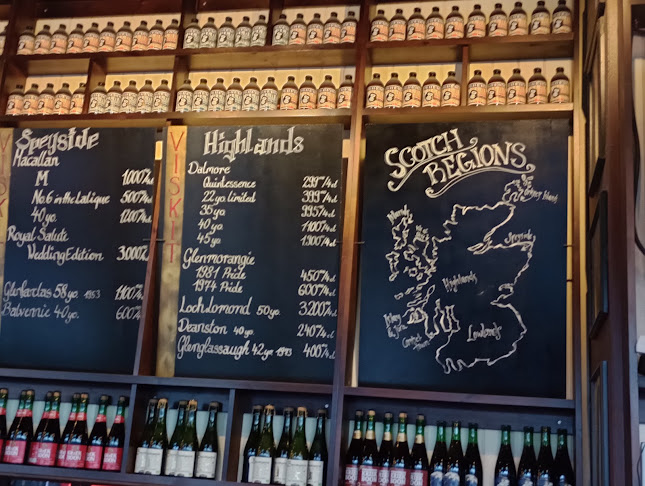 Speyside
Macallan
M 1.000%cl
No.6 in the Lalique 500%cl
40yo. 1200%cl
Royal Salute
Wedding Edition 3.000%cl
Glenfarclas 58yo. 1953 1100%cl
Balvenie 40yo. 600%cl
VISKIT
Highlands
Dalmore
Quintessence 299%cl
22yo. limited 399%cl
35yo. 995%cl
40yo. 1100%cl
45yo. 1300%cl
Glenmorangie
1981 Pride 450%cl
1974 Pride 600%cl
Loch Lomond 50yo. 3.200%cl
Deanston 40yo. 240%cl
Glenglassaugh 42yo. 1973 400%cl
SCOTCH
REGIONS
Orkney Island
Speyside
Highlands
Islay
Lowlands